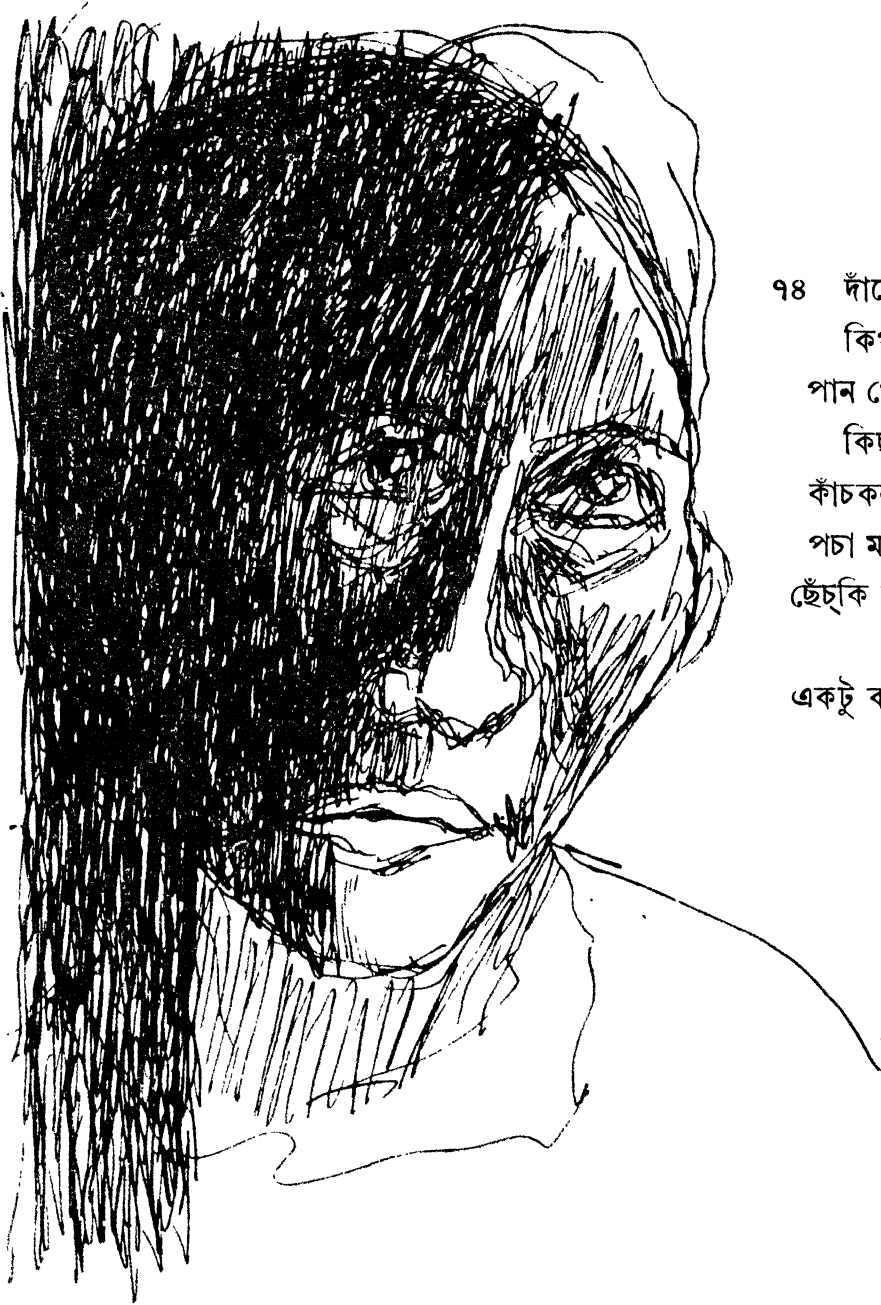 ৭৪ দাঁ
কি
পান
কি
কাঁচক
পচা ম
ছেঁচ্‌কি
একটু ব